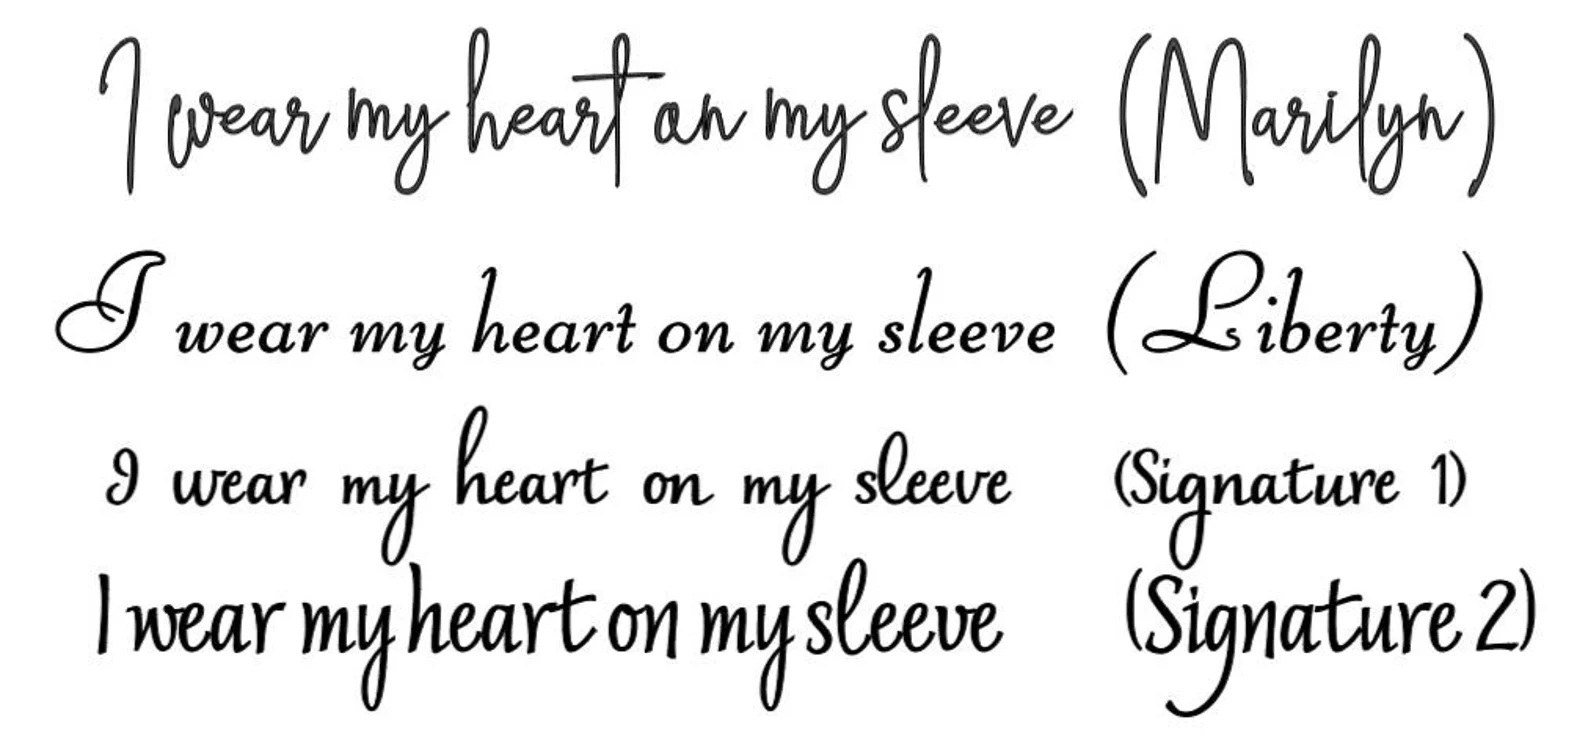 I wear my heart on my sleeve (Marilyn)
I wear my heart on my sleeve (Liberty)
I wear my heart on my sleeve (Signature 1)
I wear my heart on my sleeve (Signature 2)